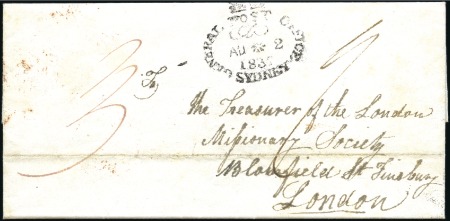 GENERAL POST OFFICE
AU 2
183
SYDNEY
3
To
the Treasurer of the London
Missionary Society
Blomfield St Finsbury
London